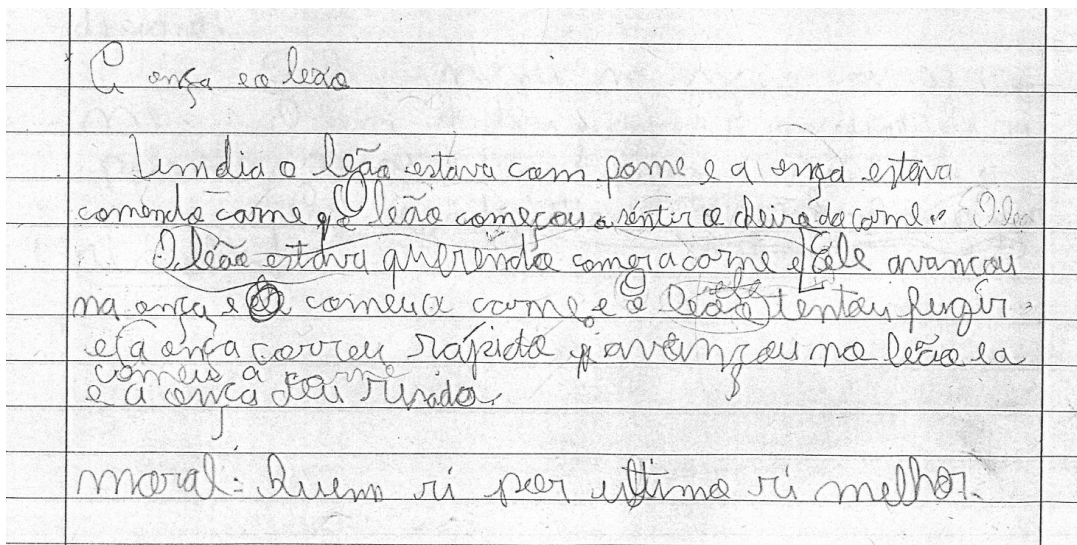 A onça e o leão
Um dia o leão estava com fome e a onça estava
comendo carne e O leão começou a sentir o cheiro da carne. O leão
O leão estava querendo comer a carne e Ele avançou
na onça e comeu a carne. e o leão tentou fugir.
e a onça correu rápido avançou no leão e a
comeu a carne
e a onça deu risada.
moral: Quem ri por ultimo ri melhor.